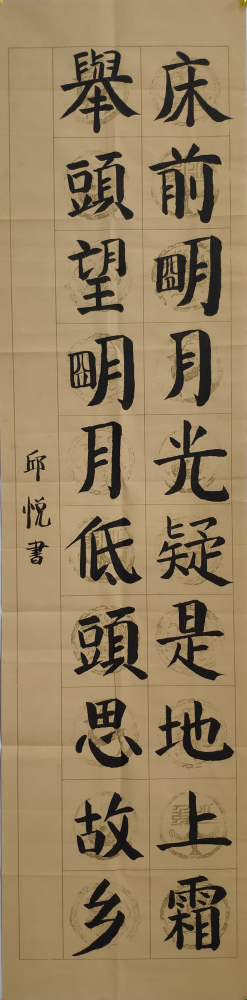 床前朙月光疑是地上霜
舉頭望朙月低頭思故乡
邱悦書